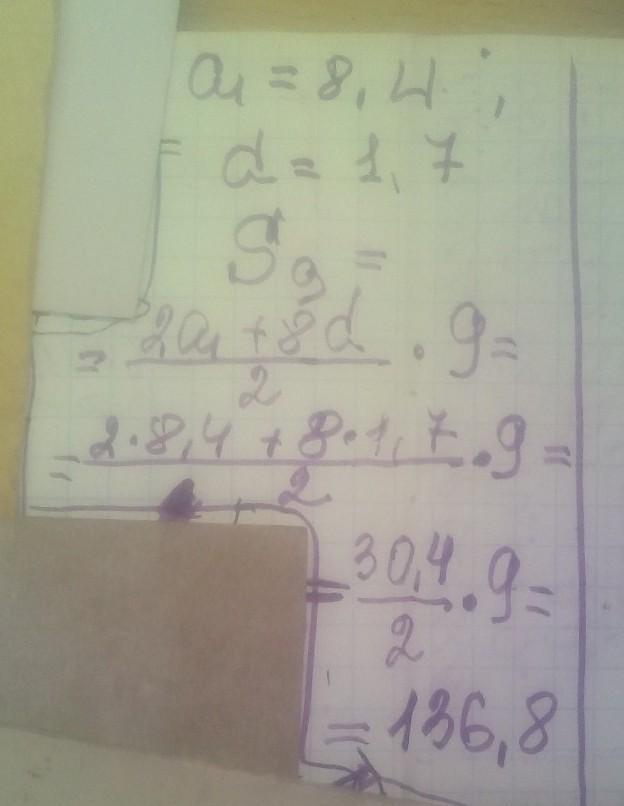 a₁ = 8,4 ;
= d = 1,7
S₉ =
= (2a₁ + 8d)/2 · 9 =
= (2·8,4 + 8·1,7)/2 · 9 =
= 30,4/2 · 9 =
= 136,8